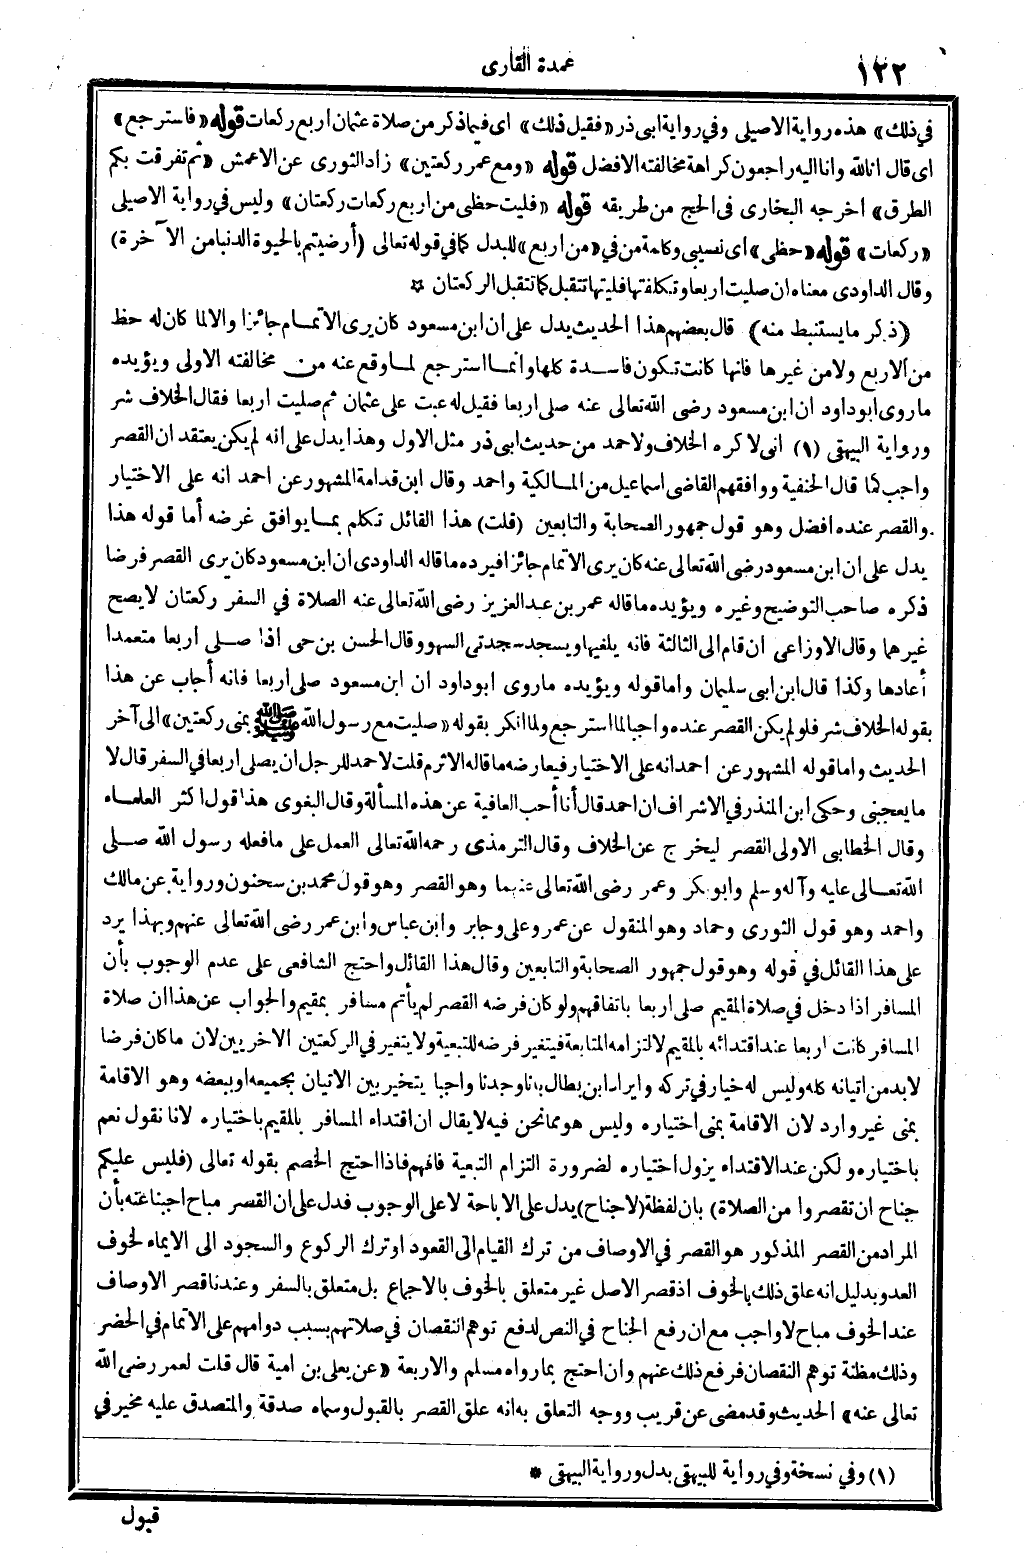 ١٢٢
عمدة القارى
في ذلك» هذه رواية الاصيلى وفي رواية ابى ذر «فقيل ذلك» اى فيما ذكر من صلاة عثمان اربع ركعات قوله «فاسترجع»
اى قال انا لله وانا اليه راجعون كراهة مخالفته الافضل قوله «ومع عمر ركعتين» زاد الثورى عن الاعمش «ثم تفرقت بكم
الطرق» اخرجه البخارى فى الحج من طريقه قوله «فليت حظى من اربع ركعات ركعتان» وليس في رواية الاصيلى
«ركعات» قوله «حظى» اى نصيبى وكلمة من في «من اربع» للبدل كما في قوله تعالى (أرضيتم بالحيوة الدنيا من الآخرة)
وقال الداودى معناه ان صليت اربعا وتكلفتها فليتها تتقبل كما تتقبل الركعتان ✡
(ذكر ما يستنبط منه) قال بعضهم هذا الحديث يدل على ان ابن مسعود كان يرى الاتمام جائزا والا لما كان له حظ
من الاربع ولا من غيرها فانها كانت تكون فاسدة كلها وانما استرجع لما وقع عنه من مخالفته الاولى ويؤيده
ما روى ابو داود ان ابن مسعود رضى الله تعالى عنه صلى اربعا فقيل له عبت على عثمان ثم صليت اربعا فقال الخلاف شر
ورواية البيهقى (١) انى لاكره الخلاف ولاحمد من حديث ابى ذر مثل الاول وهذا يدل على انه لم يكن يعتقد ان القصر
واجب كما قال الحنفية ووافقهم القاضى اسماعيل من المالكية واحمد وقال ابن قدامة المشهور عن احمد انه على الاختيار
والقصر عنده افضل وهو قول جمهور الصحابة والتابعين (قلت) هذا القائل تكلم بما يوافق غرضه أما قوله هذا
يدل على ان ابن مسعود رضى الله تعالى عنه كان يرى الاتمام جائزا فيرده ما قاله الداودى ان ابن مسعود كان يرى القصر فرضا
ذكره صاحب التوضيح وغيره ويؤيده ما قاله عمر بن عبد العزيز رضى الله تعالى عنه الصلاة في السفر ركعتان لا يصح
غيرهما وقال الاوزاعى ان قام الى الثالثة فانه يلغيها ويسجد سجدتى السهو وقال الحسن بن حى اذا صلى اربعا متعمدا
أعادها وكذا قال ابن ابى سليمان واما قوله ويؤيده ما روى ابو داود ان ابن مسعود صلى اربعا فانه أجاب عن هذا
بقوله الخلاف شر فلو لم يكن القصر عنده واجبا لما استرجع ولما انكر بقوله «صليت مع رسول الله ﷺ بمنى ركعتين» الى آخر
الحديث واما قوله المشهور عن احمد انه على الاختيار فيعارضه ما قاله الاثرم قلت لاحمد للرجل ان يصلى اربعا في السفر قال لا
ما يعجبنى وحكى ابن المنذر في الاشراف ان احمد قال أنا أحب العافية عن هذه المسألة وقال البغوى هذا قول اكثر العلماء
وقال الخطابى الاولى القصر ليخرج عن الخلاف وقال الترمذى رحمه الله تعالى العمل على ما فعله رسول الله صلى
الله تعالى عليه وآله وسلم وابو بكر وعمر رضى الله تعالى عنهما وهو القصر وهو قول محمد بن سحنون ورواية عن مالك
واحمد وهو قول الثورى وحماد وهو المنقول عن عمر وعلى وجابر وابن عباس وابن عمر رضى الله تعالى عنهم وبهذا يرد
على هذا القائل في قوله وهو قول جمهور الصحابة والتابعين وقال هذا القائل واحتج الشافعى على عدم الوجوب بأن
المسافر اذا دخل في صلاة المقيم صلى اربعا باتفاقهم ولو كان فرضه القصر لم يأتم مسافر بمقيم والجواب عن هذا ان صلاة
المسافر كانت اربعا عند اقتدائه بالمقيم لالتزامه المتابعة فيتغير فرضه للتبعية ولا يتغير في الركعتين الاخريين لان ما كان فرضا
لابد من اتيانه كله وليس له خيار في تركه وايراد ابن بطال بانا وجدنا واجبا يتخير بين الاتيان بجميعه او ببعضه وهو الاقامة
بمنى غير وارد لان الاقامة بمنى اختياره وليس هو مما نحن فيه لا يقال ان اقتداء المسافر بالمقيم باختياره لانا نقول نعم
باختياره ولكن عند الاقتداء يزول اختياره لضرورة التزام التبعية فافهم فاذا احتج الخصم بقوله تعالى (فليس عليكم
جناح ان تقصروا من الصلاة) بان لفظة (لا جناح) يدل على الاباحة لا على الوجوب فدل على ان القصر مباح اجبنا عنه بأن
المراد من القصر المذكور هو القصر في الاوصاف من ترك القيام الى القعود او ترك الركوع والسجود الى الايماء لخوف
العدو بدليل انه علق ذلك بالخوف اذ قصر الاصل غير متعلق بالخوف بالاجماع بل متعلق بالسفر وعندنا قصر الاوصاف
عند الخوف مباح لا واجب مع ان رفع الجناح في النص لدفع توهم النقصان في صلاتهم بسبب دوامهم على الاتمام في الحضر
وذلك مظنة توهم النقصان فرفع ذلك عنهم وان احتج بما رواه مسلم والاربعة «عن يعلى بن امية قال قلت لعمر رضى الله
تعالى عنه» الحديث وقد مضى عن قريب ووجه التعلق به انه علق القصر بالقبول وسماه صدقة والمتصدق عليه مخير في
(١) وفي نسخة وفي رواية للبيهقى بدل ورواية البيهقى *
قبول